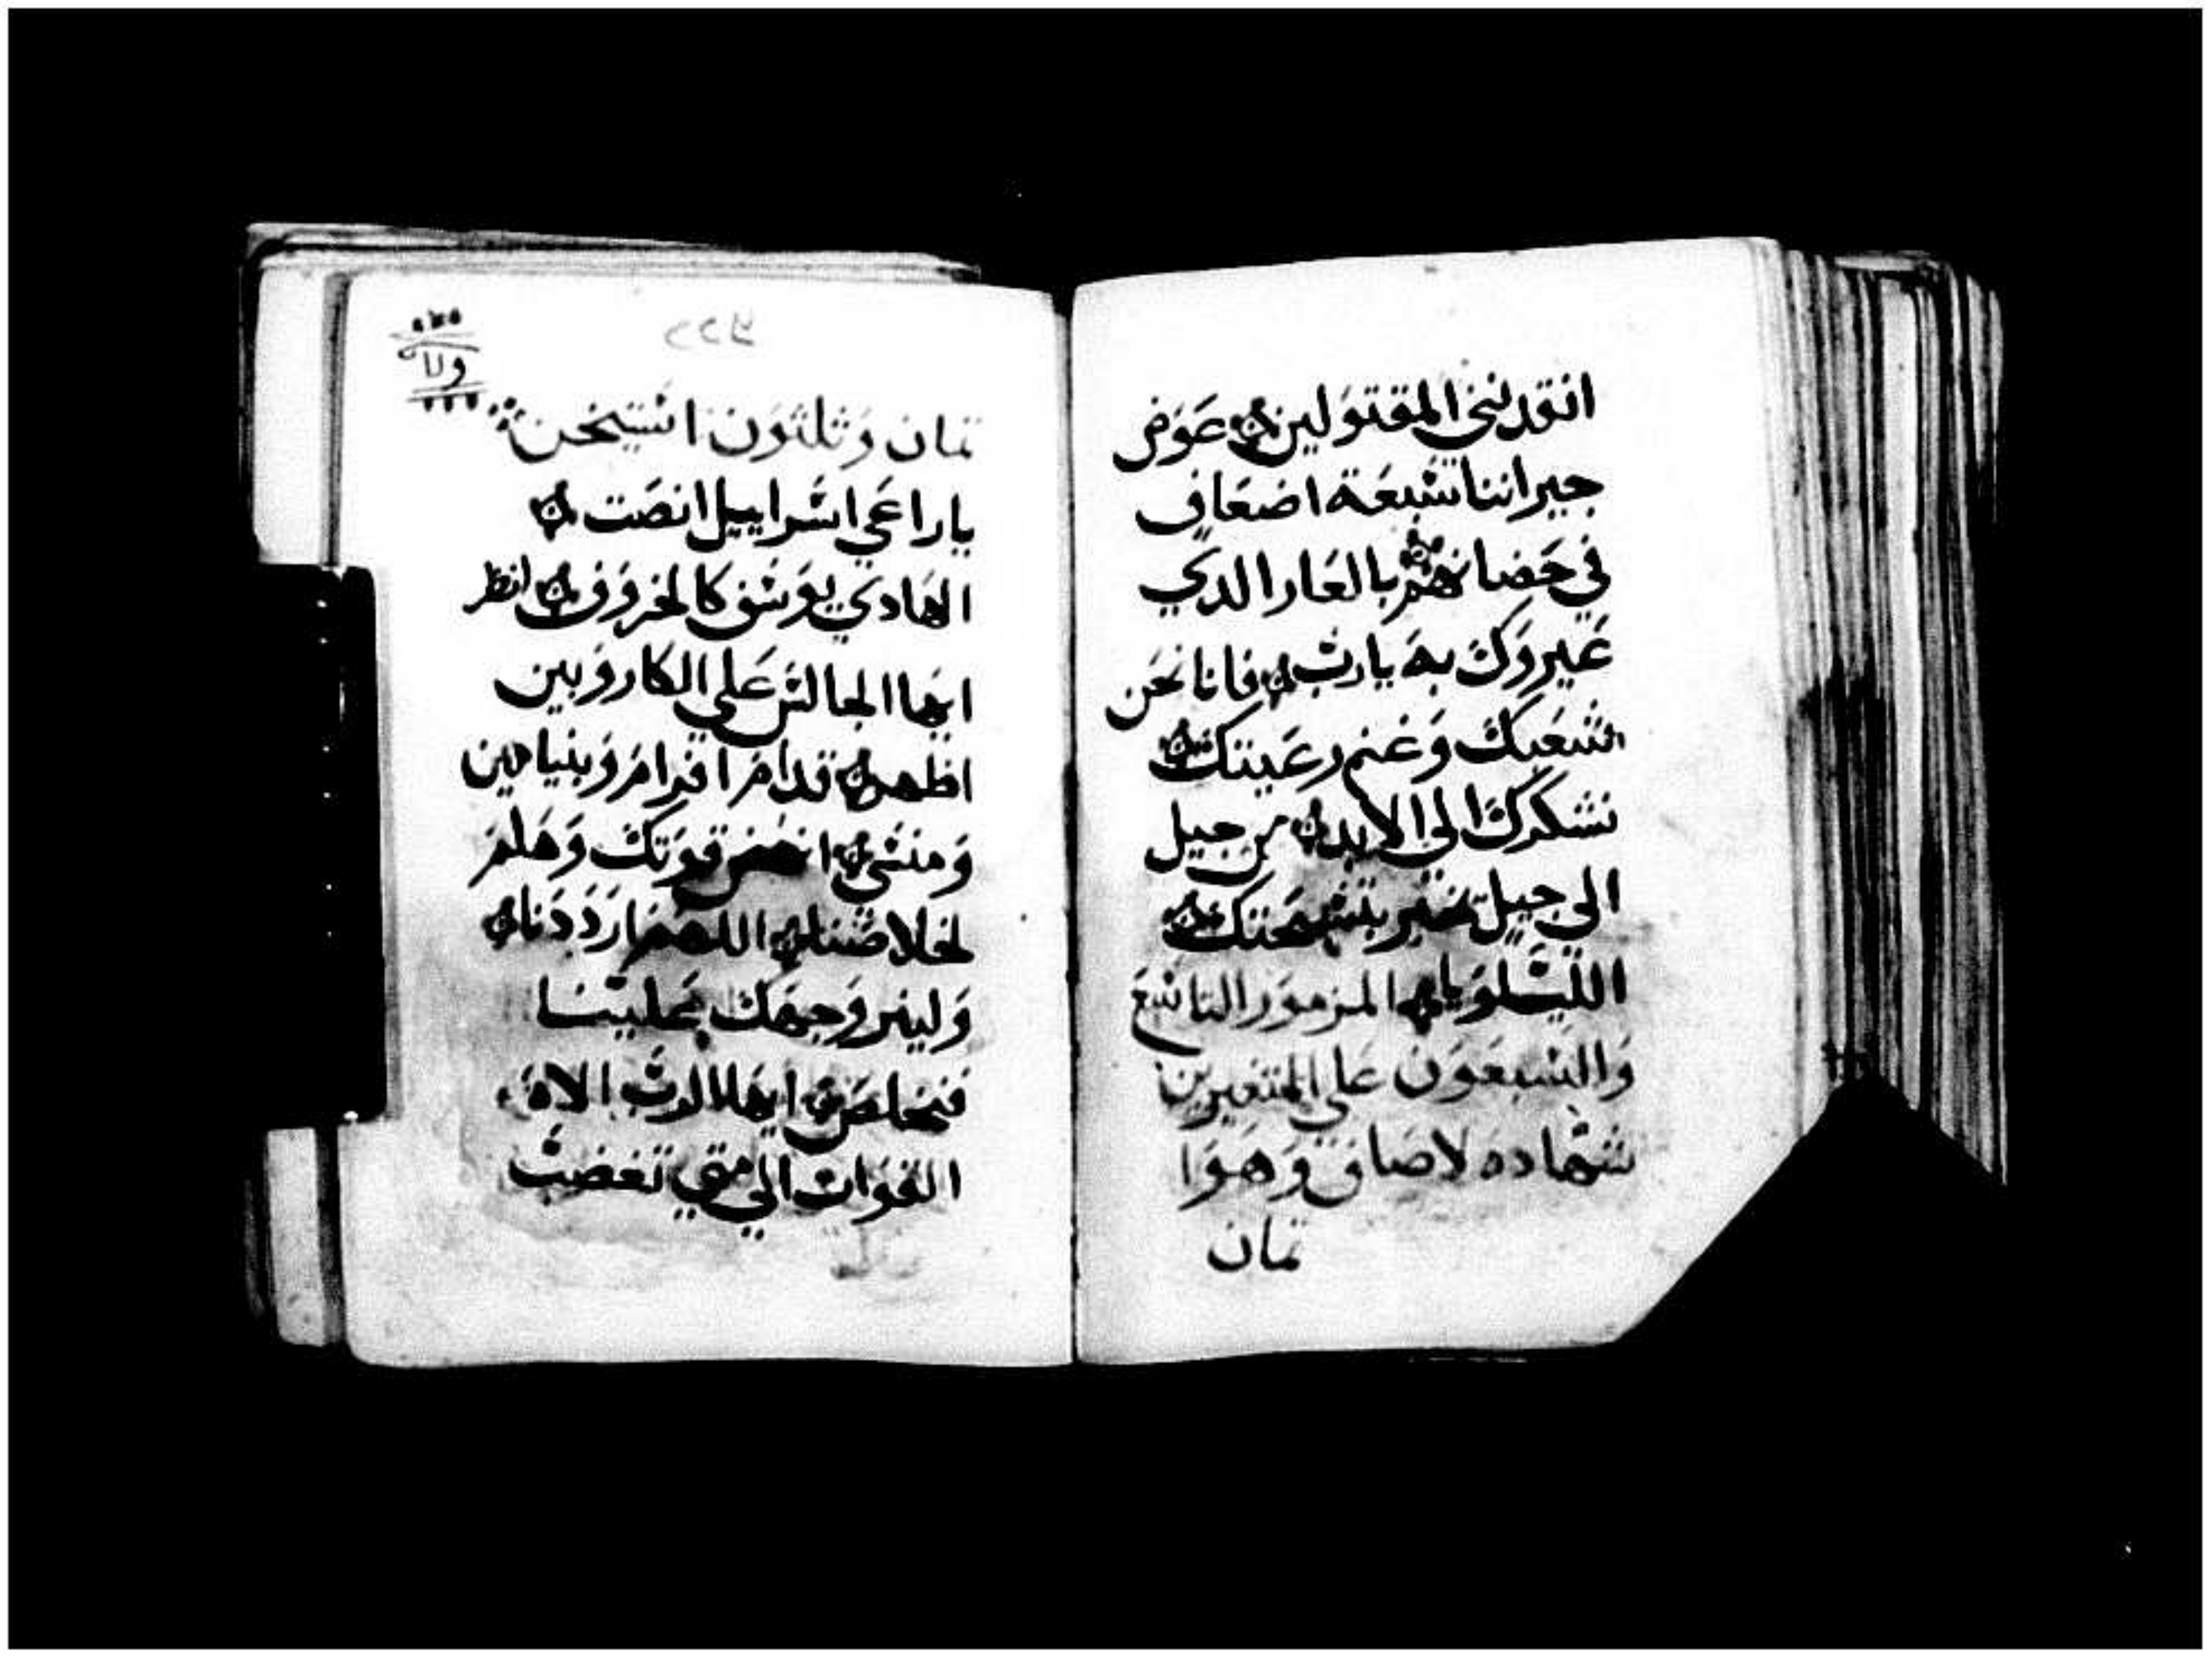 انقد بني المقتولين عوض
جيراننا سبعة اضعاف
في حضانهم بالعار الدي
عيروك به يارب فانا نحن
شعبك وغنم رعيتك
نشكرك الى الابد من جيل
الى جيل نخبر بتسبحتك
الليلويا المزمور التاسع
والسبعون على المتغيرين
شهاده لاصاف وهوا
تمان
٢٢٧
تمان وثلثون استيخن
ياراعي اسراييل انصت
الهادي يوسف كالخروف انظر
ايها الجالس على الكاروبين
اظهر قدام افرام وبنيامين
ومنسي انهض قوتك وهلم
لخلاصنا اللهم ارددنا
ولينر وجهك علينا
فنخلص ايها الرب الاه
القوات الي متي تغضب